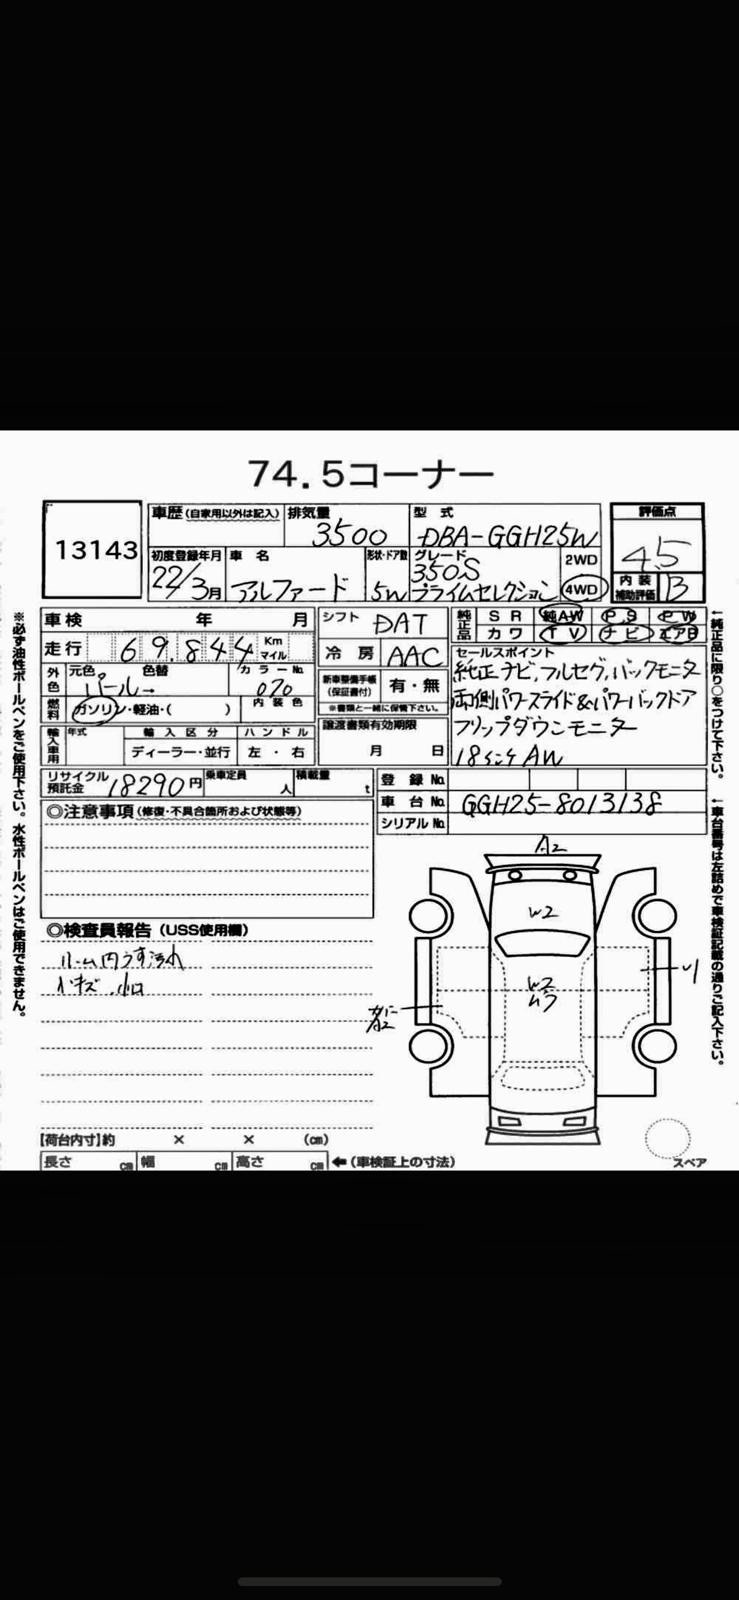 74.5コーナー
13143
車歴(自家用以外は記入)
排気量
3500
型式
DBA-GGH25W
評価点
4.5
初度登録年月
22/3月
車名
アルファード
形状・ドア数
5W
グレード
350S
プライムセレクション
2WD
4WD
内装
補助評価
B
車検 年 月
シフト
DAT
純正品
SR 純AW PS PW
カワ TV ナビ エアB
走行
69.844
Km
マイル
冷房
AAC
セールスポイント
純正ナビ,フルセグ,バックモニタ
両側パワースライド&パワーバックドア
フリップダウンモニター
18インチAW
外色
元色
色替
パール
カラーNo.
070
新車整備手帳
(保証書付)
有・無
※書類と一緒に保管下さい。
燃料
ガソリン・軽油・( )
内装色
譲渡書類有効期限
月 日
輸入車用
年式
輸入区分
ハンドル
ディーラー・並行
左・右
リサイクル
預託金
18290円
乗車定員
人
積載量
t
登録No.
車台No.
GGH25-8013138
シリアルNo.
◎注意事項(修復・不具合箇所および状態等)
◎検査員報告(USS使用欄)
ルーム内うす汚れ
小キズ.凹
A2
W2
W2
【荷台内寸】約 × × (cm)
長さ cm 幅 cm 高さ cm
←(車検証上の寸法)
スペア
※必ず油性ボールペンをご使用下さい。水性ボールペンはご使用できません。
←純正品に限り○をつけて下さい。
←車台番号は左詰めで車検証記載の通りご記入下さい。